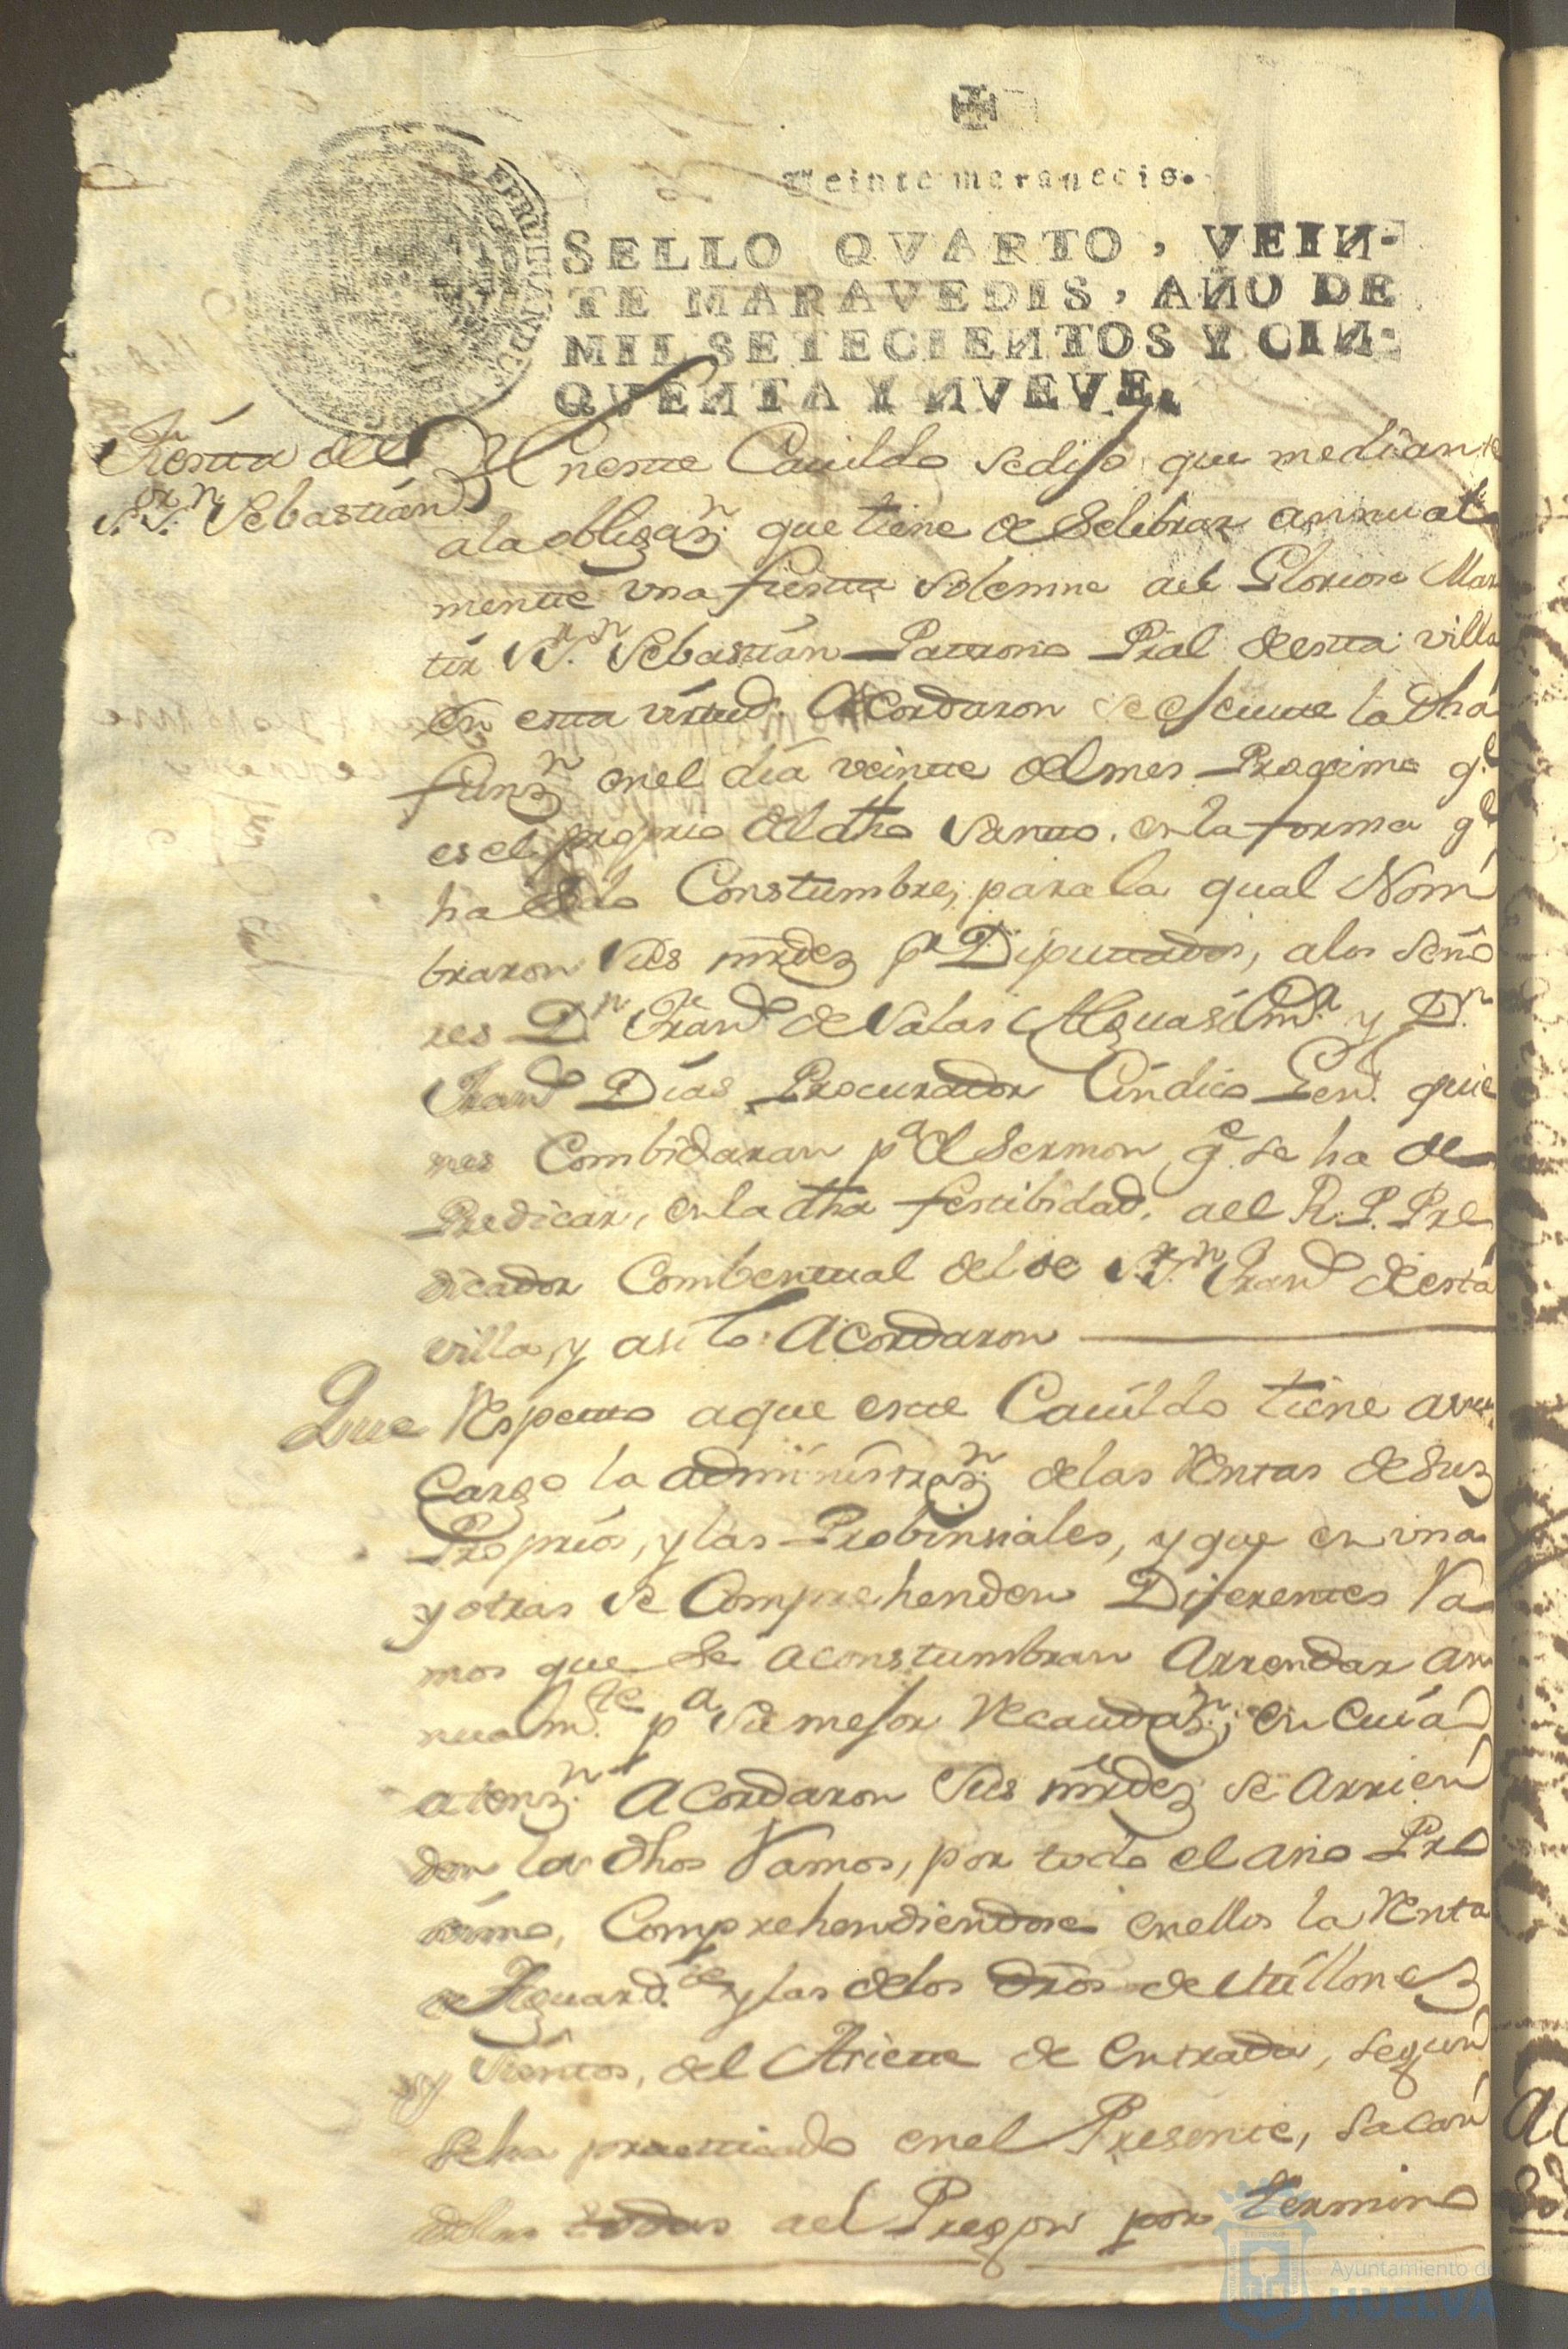 Veinte maravedis.
SELLO QVARTO, VEIN-
TE MARAVEDIS, AÑO DE
MIL SETECIENTOS Y CIN-
QVENTA Y NVEVE.
Fiesta del
S.r S.n Sebastián
En este Cavildo se dijo que mediante
a la obligaz.n que tiene de Selebrar annual
mente vna fiesta solemne ael Glorioso Mar
tir S.r S.n Sebastián Patrono Pral de esta villa
en esta virtud. Acordaron se ejecute la dha
funz.n en el día veinte del mes Proximo q.e
es el proprio del dho Santo. en la forma q.e
ha sido Constumbre, para la qual Nom
braron Sus mrdez p.r Diputados, a los Seño
res D.n Fran.co de Salas Alguasil m.r y D.n
Fran.co Días Procurador Cíndico Gen.l quie
nes Combidaran p.a el Sermon, q.e se ha de
Predicar, en la dha festibidad. ael R. P. Pre
dicador Combentual del de S.r S.n Fran.co de esta
villa, y así lo Acordaron
Que Respecto a que este Cavildo tiene a su
Cargo la administraz.n de las Rentas de Suz
Proprios, y las Probinsiales, y que en vna
y otras se Comprehenden Diferentes Ra
mos que se aconstumbran Arrendar an
nualm.te p.a su mejor Recaudaz.n, en cuia
atenz.n Acordaron Sus mrdez se Arrien
den los dhos Ramos, por todo el año Pro
ximo, Comprehendiendose en ellos la Renta
de Aguard.te y las de los dros de Millonez
y Sientos, del Azeite de entrada, segun
se ha practicado en el Presente, sacan
dolas todas ael Pregon por termino
Ayuntamiento de
HUELVA